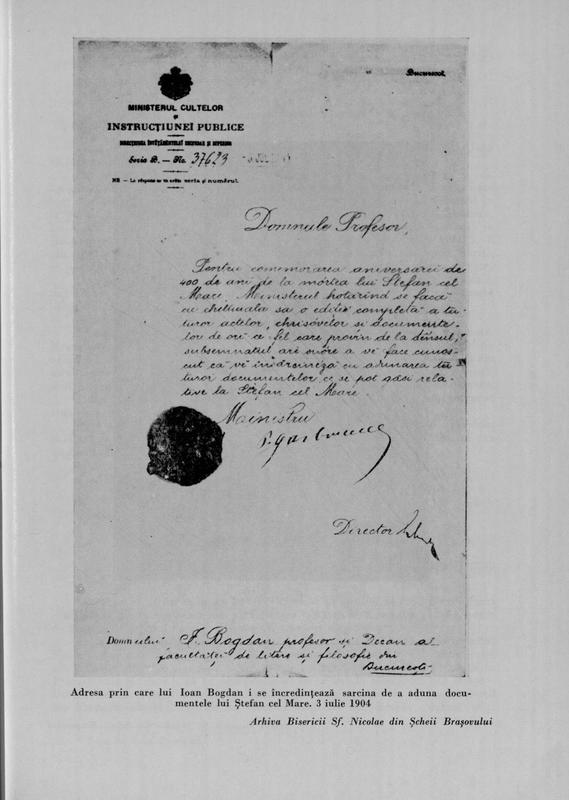 MINISTERUL CULTELOR
ȘI
INSTRUCȚIUNEI PUBLICE
DIRECȚIUNEA ÎNVĂȚĂMÂNTULUI SECUNDAR ȘI SUPERIOR
Seria B. — No. 37623
NB — La răspuns se va scrie seria și numărul.
Bucuresci,
Domnule Profesor,
Pentru comemorarea aniversarei de
400 de ani de la mórtea lui Stefan cel
Mare, Ministerul hotărînd se facă
cu cheltuiala sa o ediție completă a tu-
turor actelor, chrisóvelor si documente-
lor de ori ce fel care provin de la dênsul,
subsemnatul are onóre a vĕ face cunos-
cut că vĕ însărcinéză cu adunarea tu-
turor documentelor ce se pot găsi rela-
tive la Ștefan cel Mare.
Ministru
Director
Domnului I. Bogdan profesor și Decan al
facultăței de litere și filosofie din
Bucuresci
Adresa prin care lui Ioan Bogdan i se încredințează sarcina de a aduna docu-
mentele lui Ștefan cel Mare. 3 iulie 1904
Arhiva Bisericii Sf. Nicolae din Șcheii Brașovului